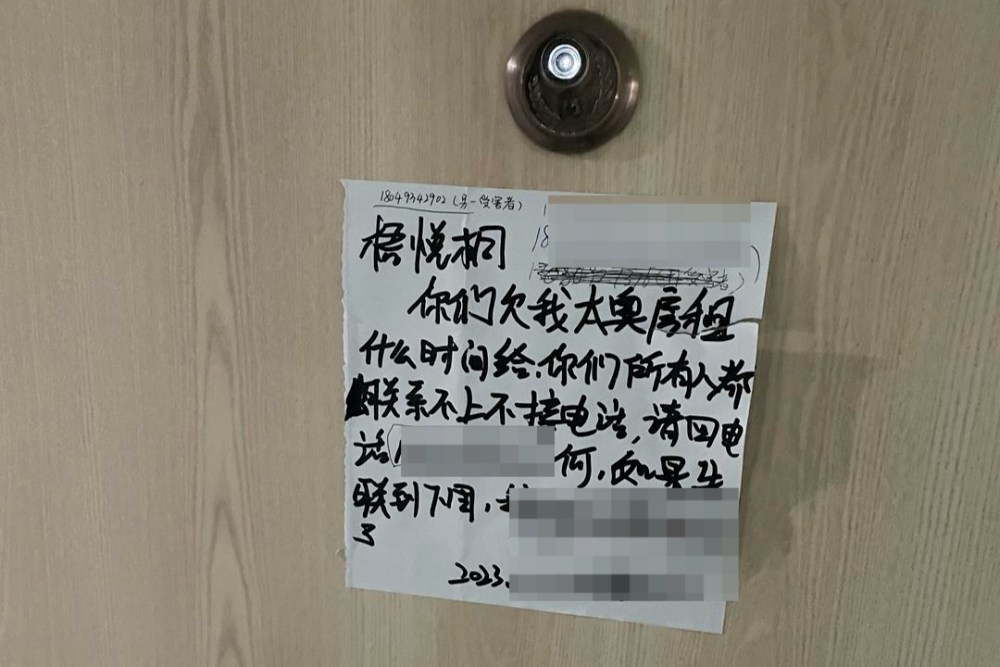 18049342902(另一受害者)
18
梧悦桐
受害者)
你们欠我太奥房租
什么时间给,你们所有人都
联系不上不接电话,请回电
话 何,如果失
联到下周,我
了
2023.